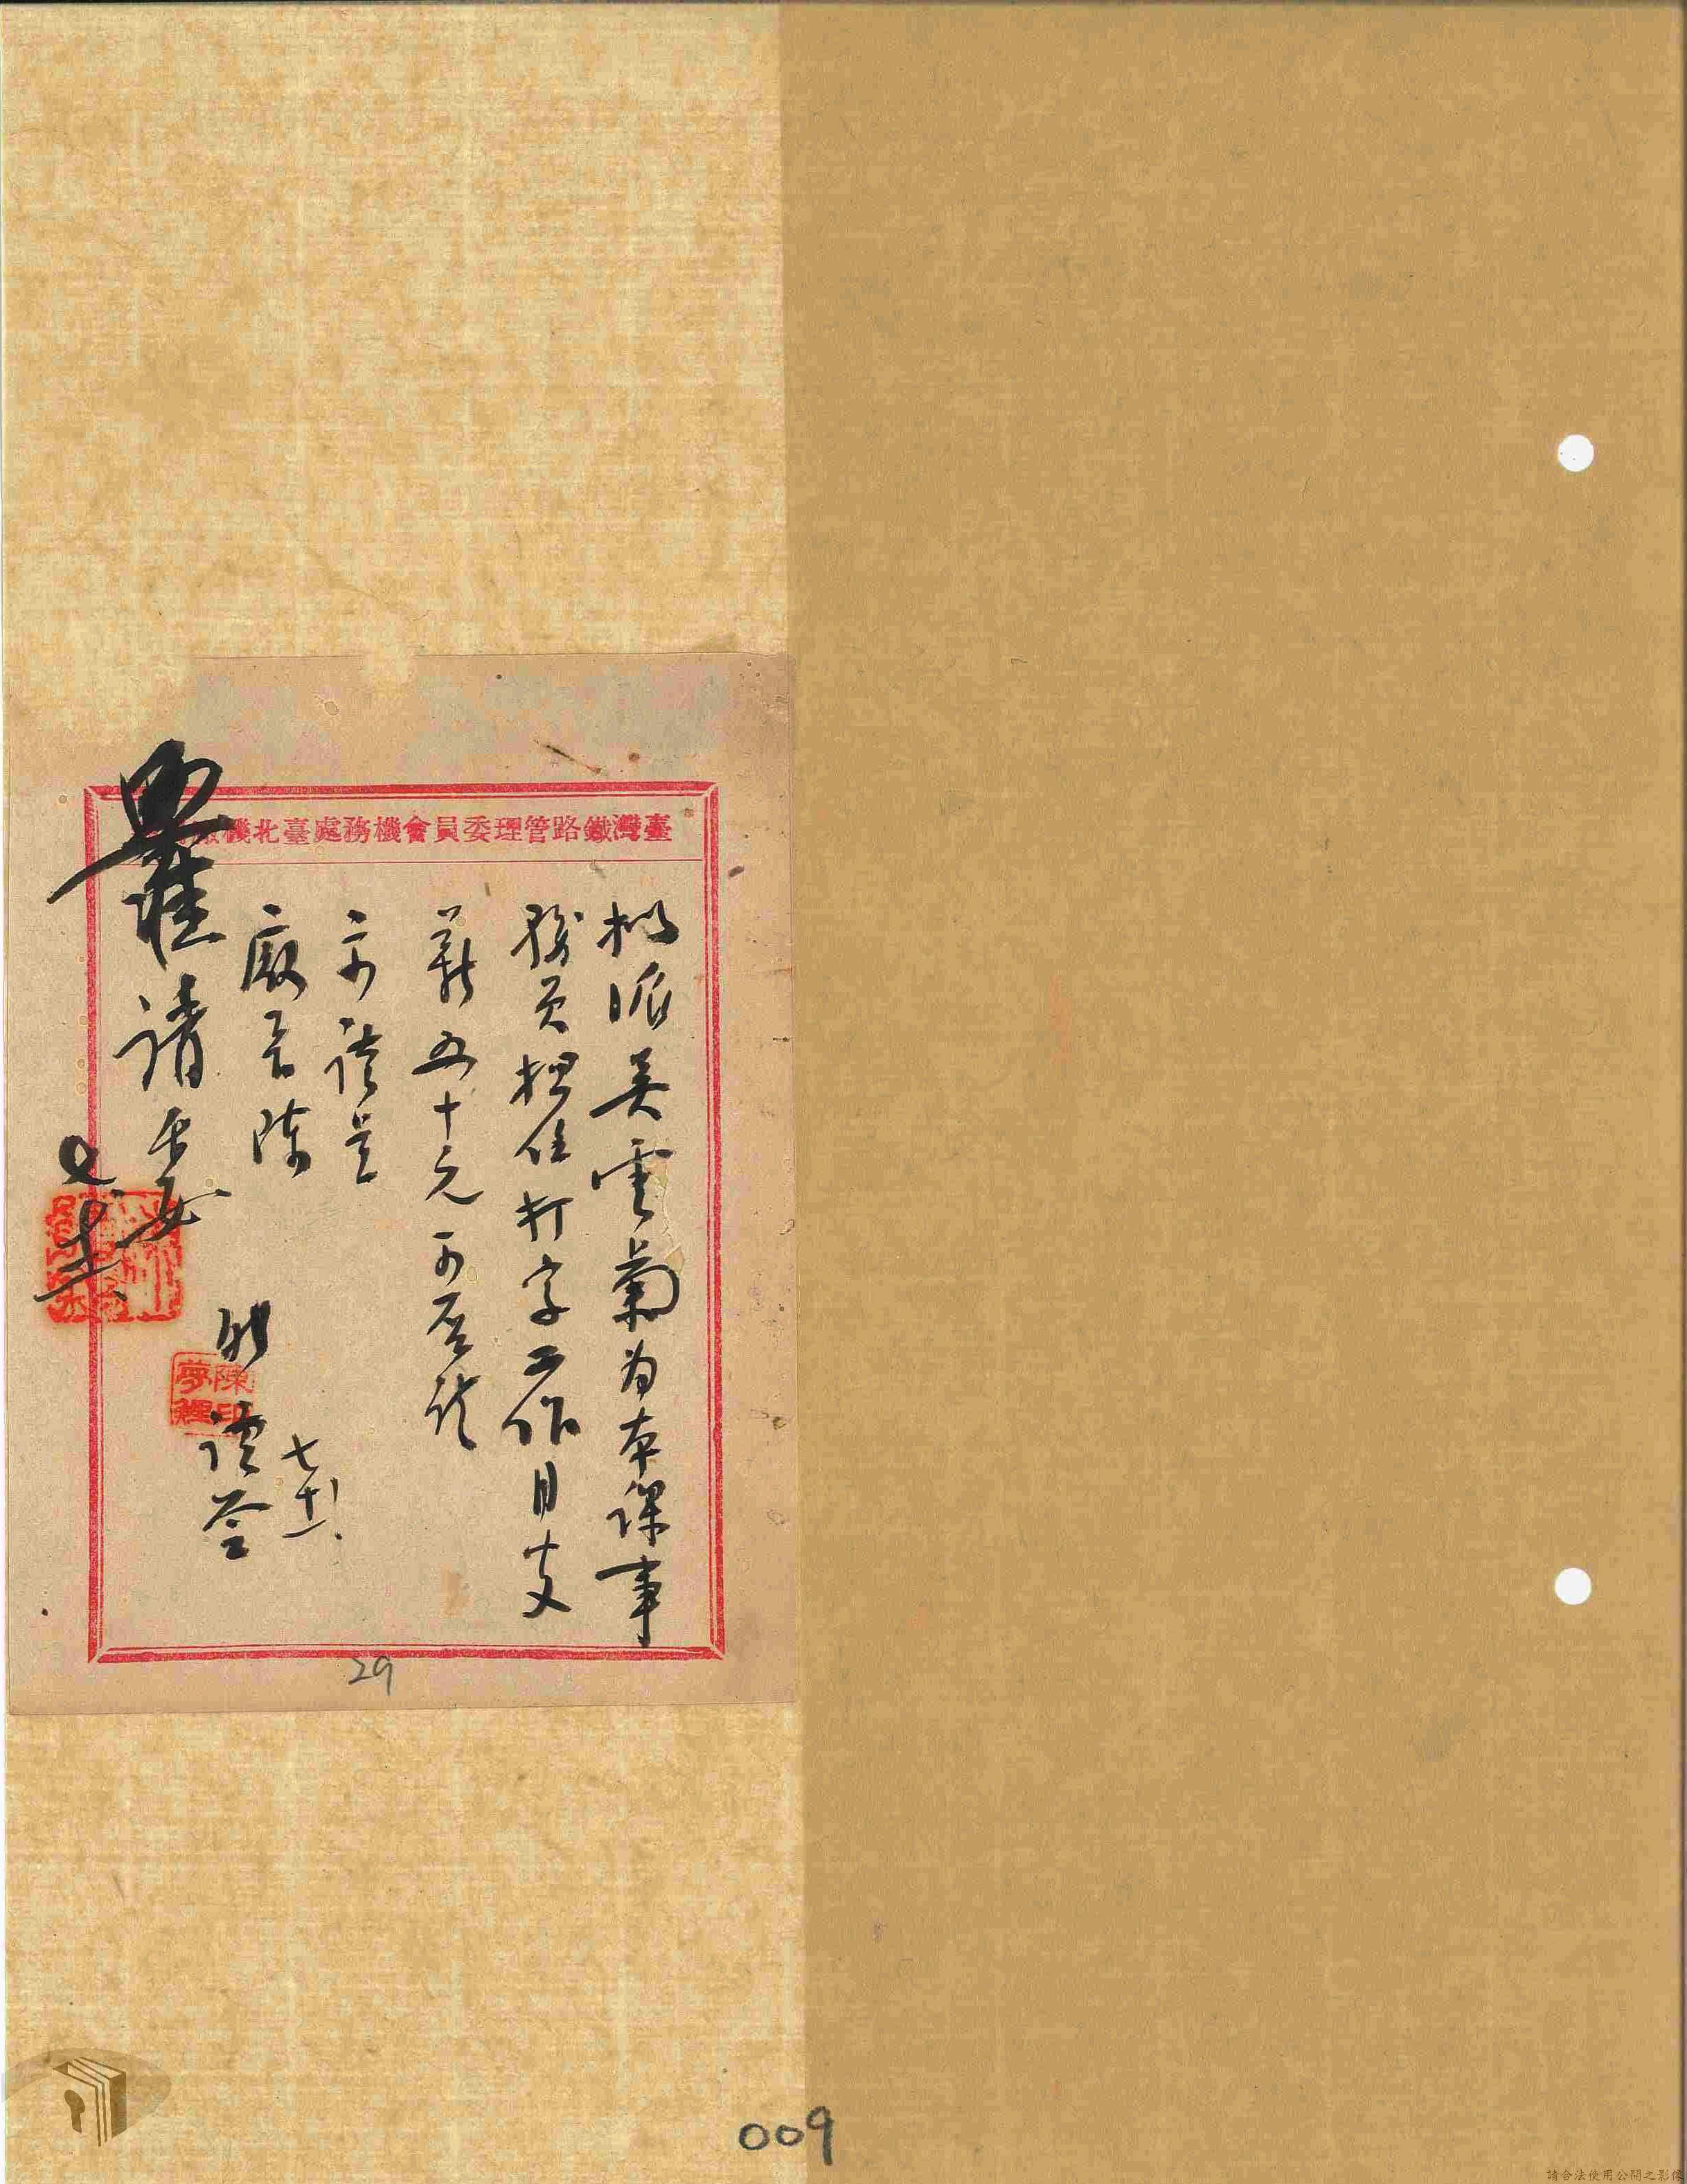 臺灣鐵路管理委員會機務處臺北機
擬派吳雲菊為本課事
務員担任打字工作月支
薪五十元可否請
示謹呈
廠長陳
職
謹簽
七、十一、
請
陳印
夢鯉
29
009
請合法使用公開之影像